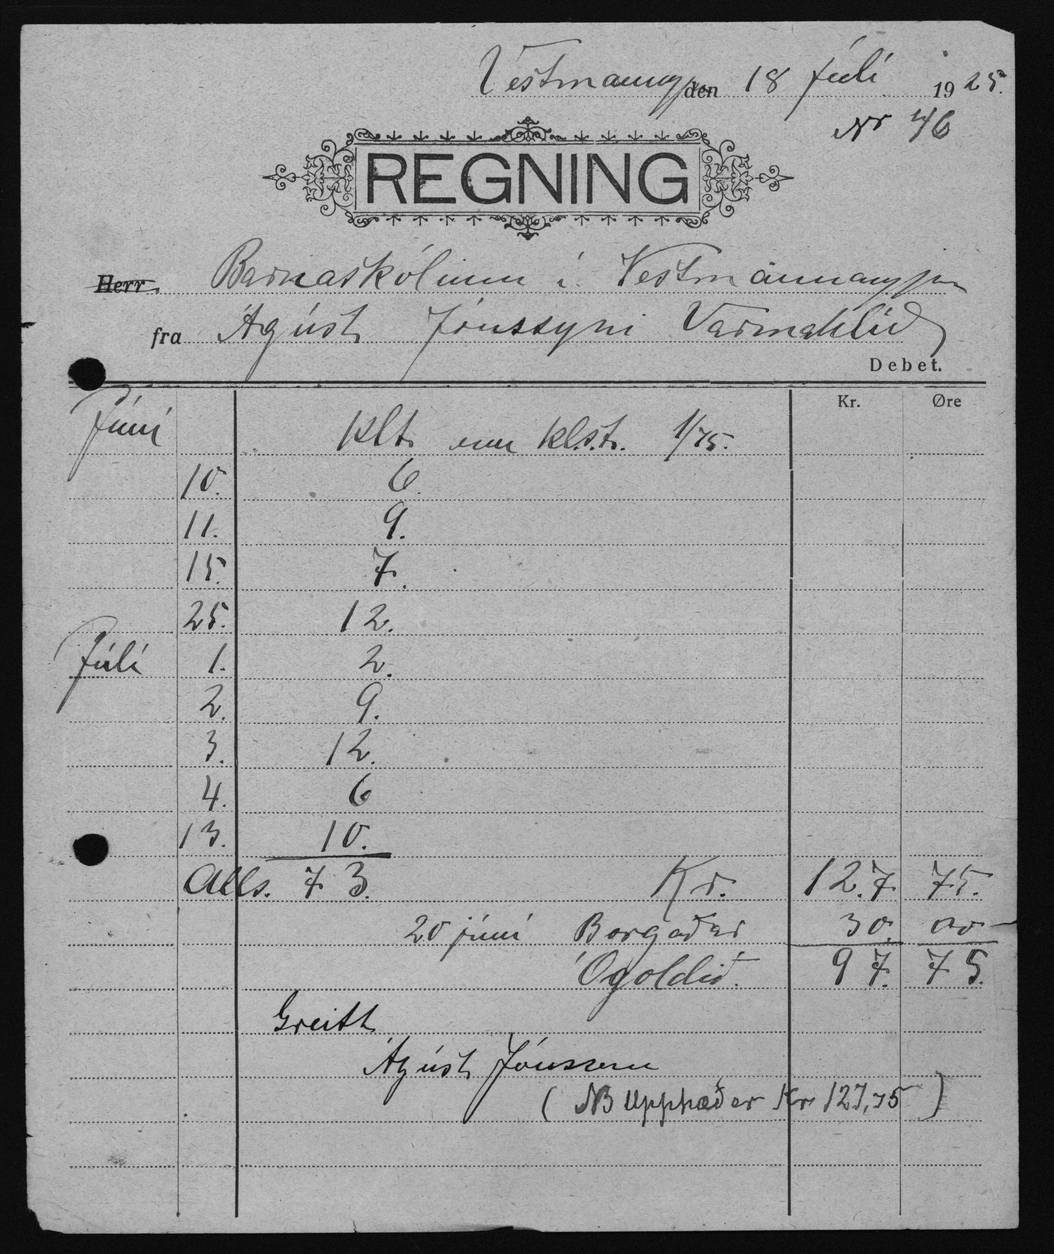 Vestmanneyjum den 18 júlí 1925.
Nr 46
REGNING
Herr. Barnaskólinn í Vestmannaeyjum
fra Ágúst Jónssyni Varmahlíð
Debet.
Kr. Øre
Júní Klt. enn klst. 1/75.
10. 6.
11. 9.
15. 7.
25. 12.
Júlí 1. 2.
2. 9.
3. 12.
4. 6
13. 10.
Alls. 73. Kr. 127. 75.
20 júní Borgaðar 30. 00
Ógoldið. 97. 75.
Greitt
Ágúst Jónsson
(NB Upphæðer Kr 127,75)